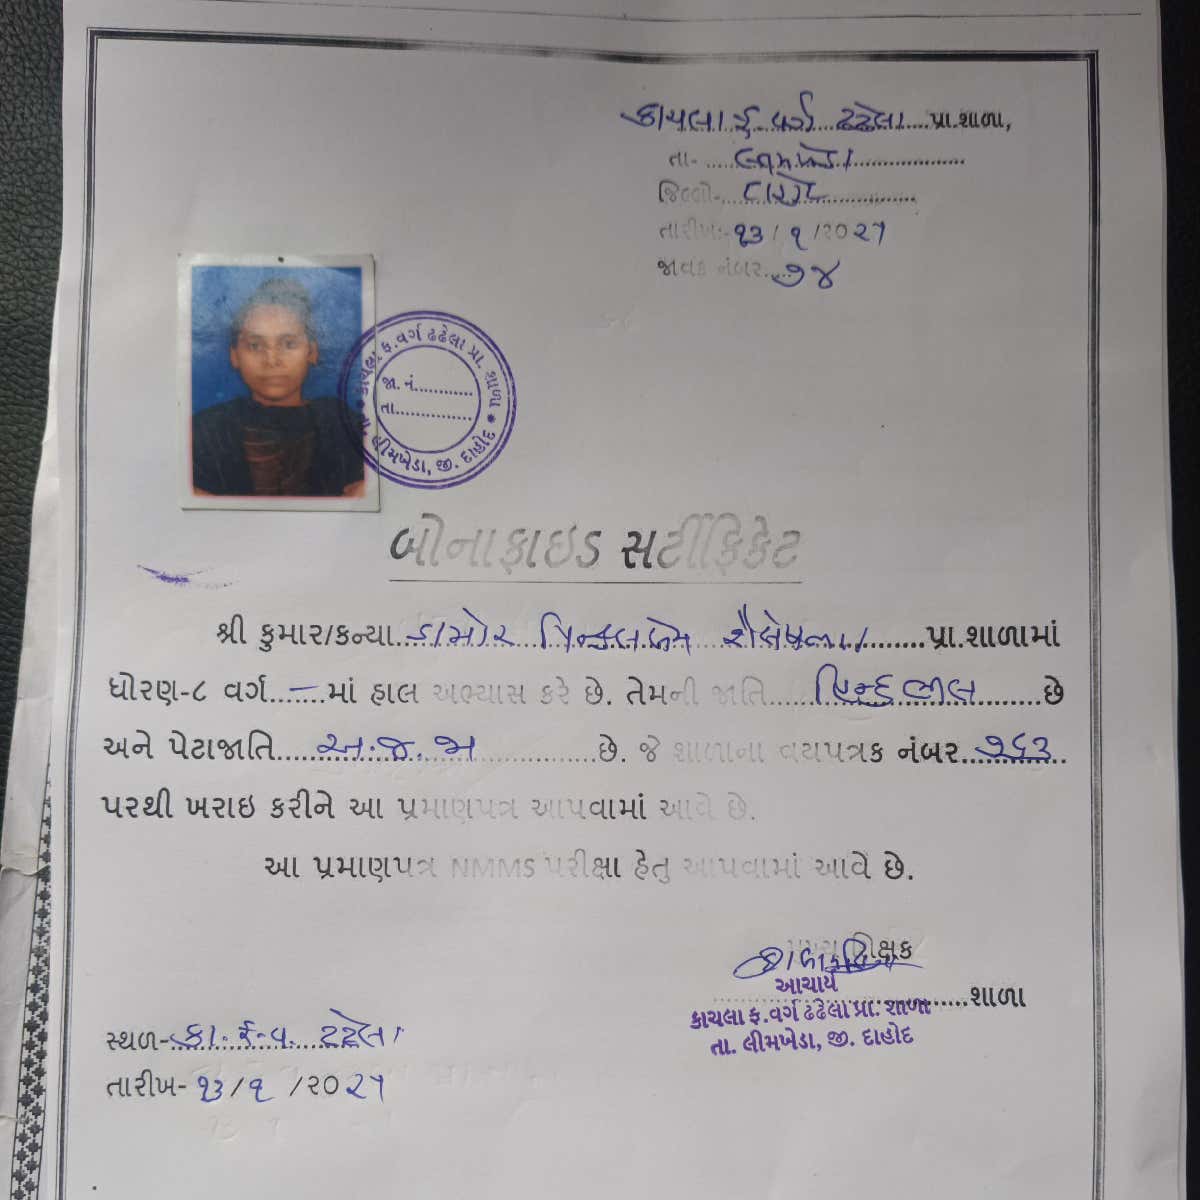 કાચલા ફ વર્ગ ઢઢેલા પ્રા.શાળા,
તા- લીમખેડા
જિલ્લો- દાહોદ
તારીખ:- ૧૩/૧/૨૦૨૧
જાવક નંબર ૭૪
કાચલા ફ.વર્ગ ઢઢેલા પ્રા. શાળા
જા. નં.
તા.
તા. લીમખેડા, જી. દાહોદ
બોનાફાઇડ સર્ટીફિકેટ
શ્રી કુમાર/કન્યા ડામોર શૈલેષભાઇ પ્રા.શાળામાં
ધોરણ-૮ વર્ગ.-માં હાલ અભ્યાસ કરે છે. તેમની જાતિ હિન્દુ ભીલ છે
અને પેટાજાતિ અ.જ.જા છે. જે શાળાના વયપત્રક નંબર ૭૬૩
પરથી ખરાઇ કરીને આ પ્રમાણપત્ર આપવામાં આવે છે.
આ પ્રમાણપત્ર NMMS પરીક્ષા હેતુ આપવામાં આવે છે.
મુખ્ય શિક્ષક
શાળા
આચાર્ય
કાચલા ફ.વર્ગ ઢઢેલા પ્રા. શાળા
તા. લીમખેડા, જી. દાહોદ
સ્થળ- કા. ફ. વ. ઢઢેલા
તારીખ- ૧૩/૧/૨૦૨૧